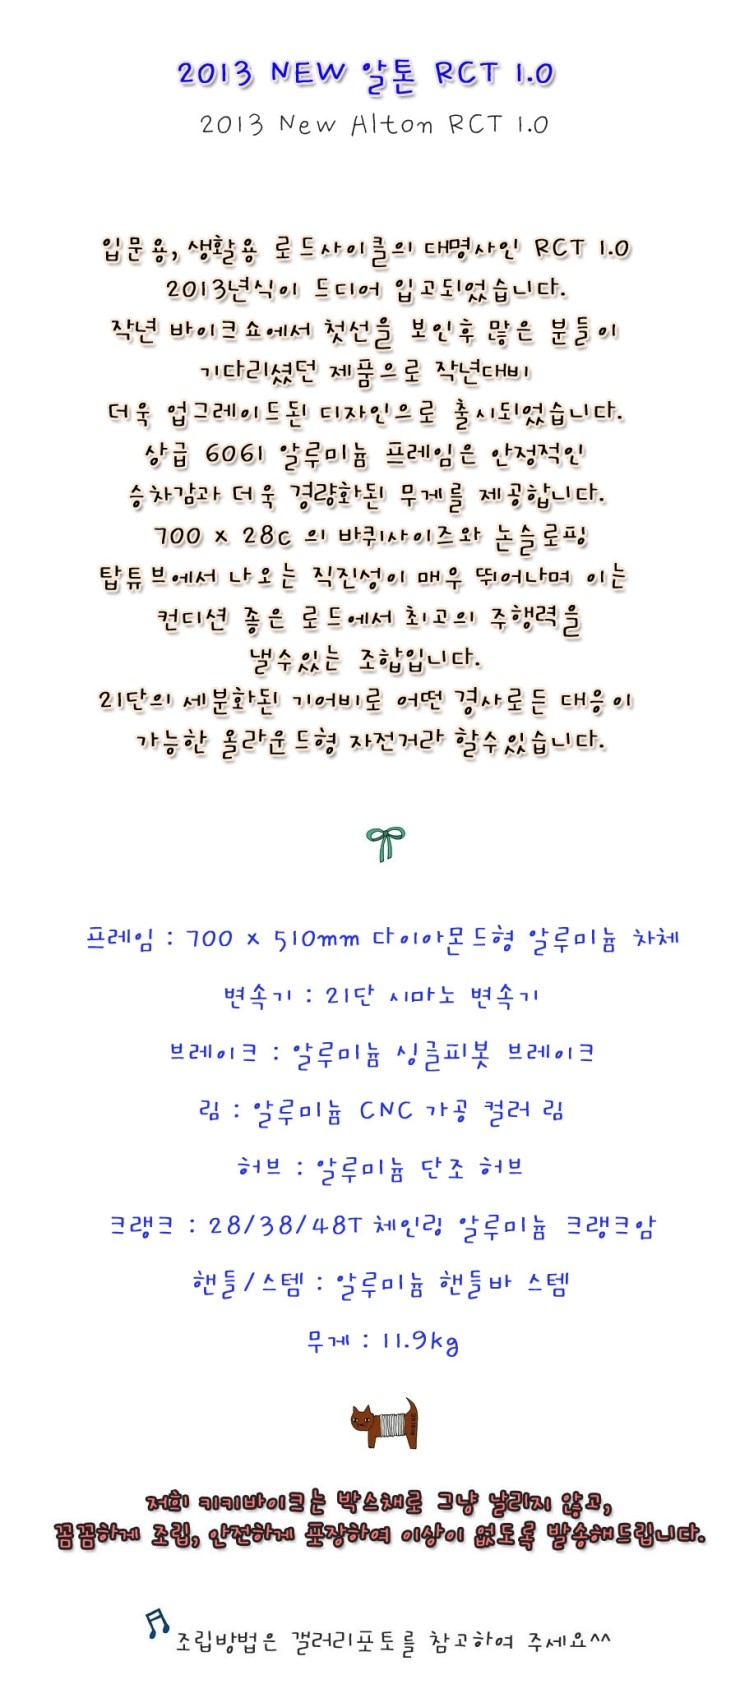 2013 NEW 알톤 RCT 1.0
2013 New Alton RCT 1.0
입문용, 생활용 로드사이클의 대명사인 RCT 1.0
2013년식이 드디어 입고되었습니다.
작년 바이크쇼에서 첫선을 보인후 많은 분들이
기다리셨던 제품으로 작년대비
더욱 업그레이드된 디자인으로 출시되었습니다.
상급 6061 알루미늄 프레임은 안정적인
승차감과 더욱 경량화된 무게를 제공합니다.
700 x 28c 의 바퀴사이즈와 논슬로핑
탑튜브에서 나오는 직진성이 매우 뛰어나며 이는
컨디션 좋은 로드에서 최고의 주행력을
낼수있는 조합입니다.
21단의 세분화된 기어비로 어떤 경사로든 대응이
가능한 올라운드형 자전거라 할수있습니다.
프레임 : 700 x 510mm 다이아몬드형 알루미늄 차체
변속기 : 21단 시마노 변속기
브레이크 : 알루미늄 싱글피봇 브레이크
림 : 알루미늄 CNC 가공 컬러 림
허브 : 알루미늄 단조 허브
크랭크 : 28/38/48T 체인링 알루미늄 크랭크암
핸들/스템 : 알루미늄 핸들바 스템
무게 : 11.9kg
저희 키키바이크는 박스채로 그냥 날리지 않고,
꼼꼼하게 조립, 안전하게 포장하여 이상이 없도록 발송해드립니다.
조립방법은 갤러리포토를 참고하여 주세요^^